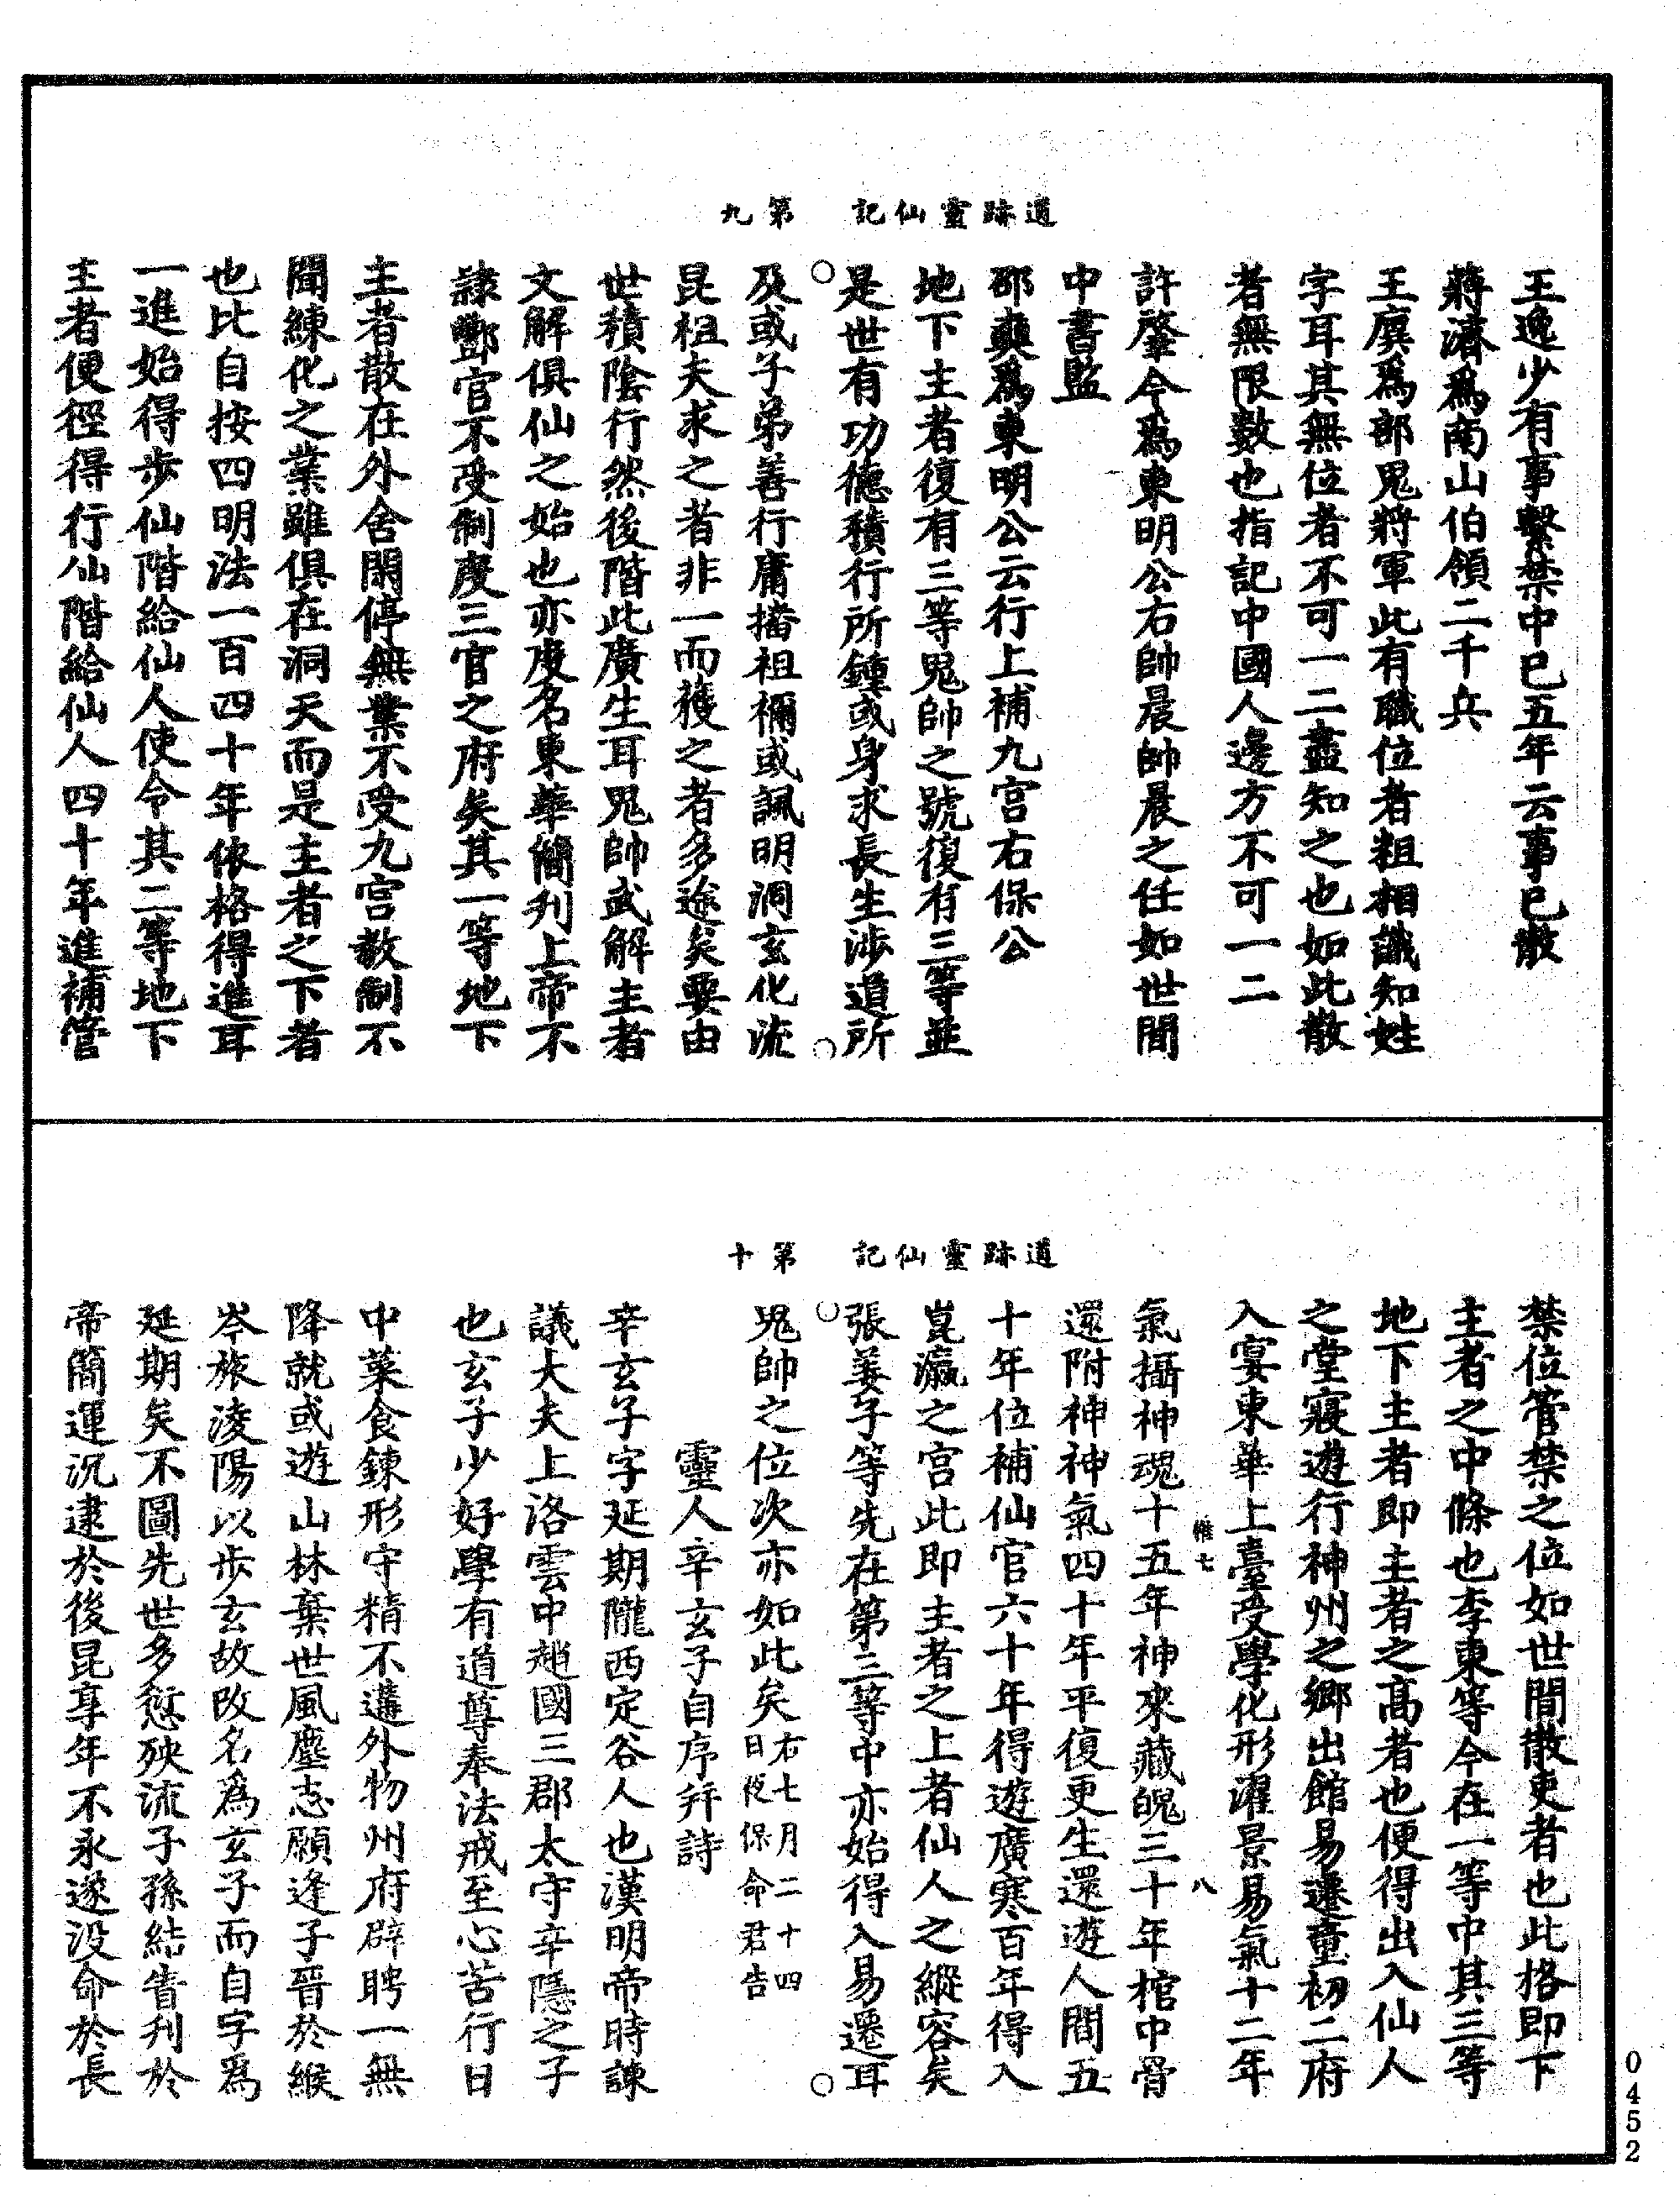 道跡靈仙記　第九
王逸少有事繫禁中已五年云事已散
蔣濟爲南山伯領二千兵
王廙爲部鬼將軍此有職位者粗相識知姓
字耳其無位者不可一二盡知之也如此散
者無限數也指記中國人邊方不可一二
許肇今爲東明公右帥晨帥晨之任如世間
中書監
邵奭爲東明公云行上補九宮右保公
地下主者復有三等鬼帥之號復有三等並
是世有功德積行所鍾或身求長生涉道所
及或子弟善行庸播祖禰或諷明洞玄化流
昆祖夫求之者非一而獲之者多途矣要由
世積陰行然後階此廣生耳鬼帥武解主者
文解俱仙之始也亦度名東華簡刋上帝不
隸酆官不受制度三官之府矣其一等地下
主者散在外舍閑停無業不受九宮教制不
聞練化之業雖俱在洞天而是主者之下者
也比自按四明法一百四十年依格得進耳
一進始得步仙階給仙人使令其二等地下
主者便徑得行仙階給仙人四十年進補管
道跡靈仙記　第十
禁位管禁之位如世間散吏者也此格即下
主者之中條也李東等今在一等中其三等
地下主者即主者之高者也便得出入仙人
之堂寢遊行神州之鄉出館易遷童初二府
入宴東華上臺受學化形濯景易氣十二年
八
氣攝神魂十五年神來藏魄三十年棺中骨
還附神神氣四十年平復更生還遊人間五
十年位補仙官六十年得遊廣寒百年得入
崑瀛之宮此即主者之上者仙人之縱容矣
張姜子等先在第三等中亦始得入易遷耳
鬼帥之位次亦如此矣右七月二十四日夜保命君告
靈人辛玄子自序幷詩
辛玄子字延期隴西定谷人也漢明帝時諫
議大夫上洛雲中趙國三郡太守辛隱之子
也玄子少好學有道尊奉法戒至心苦行日
中菜食鍊形守精不遘外物州府辟聘一無
降就或遊山林棄世風塵志願逢子晉於緱
岑旅淩陽以步玄故改名爲玄子而自字爲
延期矣不圖先世多愆殃流子孫結眚刋於
帝簡運沉逮於後昆享年不永遂没命於長
0452